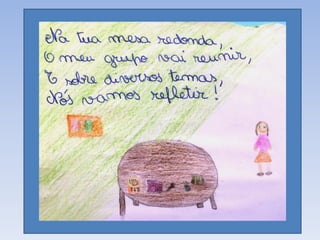 Na tua mesa redonda,
O meu grupo vai reunir,
E sobre diversos temas,
Nós vamos refletir!